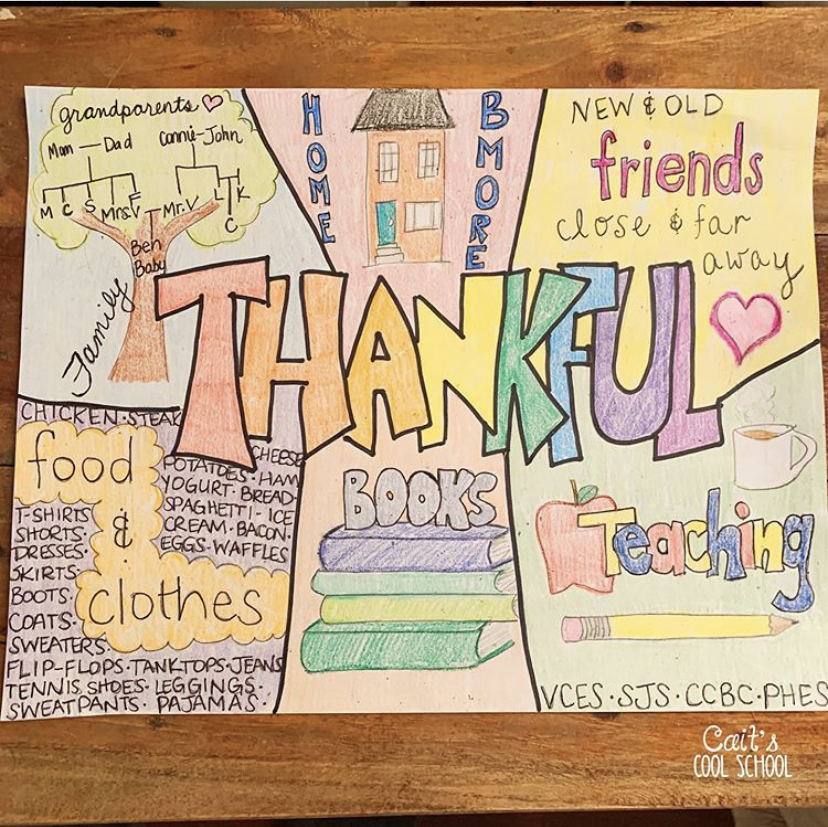 grandparents
Mom — Dad
Connie-John
M C S Mrs.V F
Mr.V L K
C
Ben
Baby
Family
HOME
BMORE
NEW & OLD
friends
close & far
away
THANKFUL
CHICKEN · STEAK
food
&
clothes
CHEESE
POTATOES · HAM
YOGURT · BREAD ·
SPAGHETTI · ICE
CREAM · BACON ·
EGGS · WAFFLES
T-SHIRTS
SHORTS ·
DRESSES ·
SKIRTS ·
BOOTS ·
COATS ·
SWEATERS ·
FLIP-FLOPS · TANKTOPS · JEANS
TENNIS SHOES · LEGGINGS ·
SWEATPANTS · PAJAMAS ·
BOOKS
Teaching
VCES · SJS · CCBC · PHES
Cait's
COOL SCHOOL